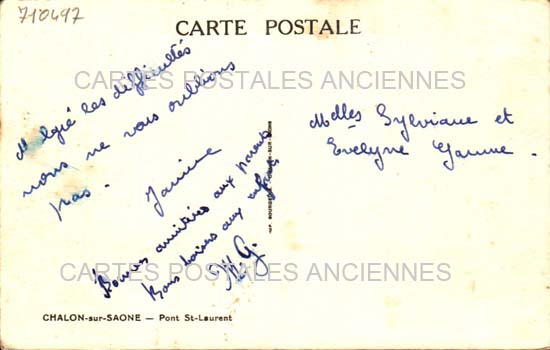 710497
CARTE POSTALE
Malgré les difficultés
nous ne vous oublions
pas.
Janine
Bonnes amitiés aux parents
Bons baisers aux
M. G.
Melles Sylviane et
Evelyne
CARTES POSTALES ANCIENNES
CARTES POSTALES ANCIENNES
CHALON-sur-SAONE — Pont St-Laurent